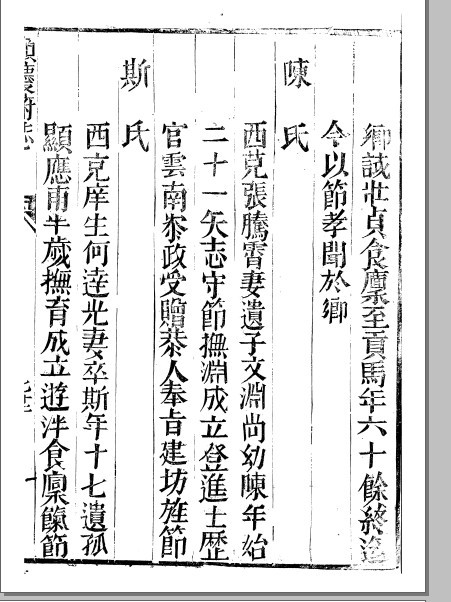 卿誠壯貞食廩至貢馬年六十餘終迄
今以節孝聞於鄉
陳氏
西充張騰霄妻遺子文淵尚幼陳年始
二十一矢志守節撫淵成立登進士歷
官雲南叅政受贈恭人奉旨建坊旌節
斯氏
西充庠生何逵光妻卒斯年十七遺孤
顯應甫半歲撫育成立遊泮食廩餼節
順慶府志